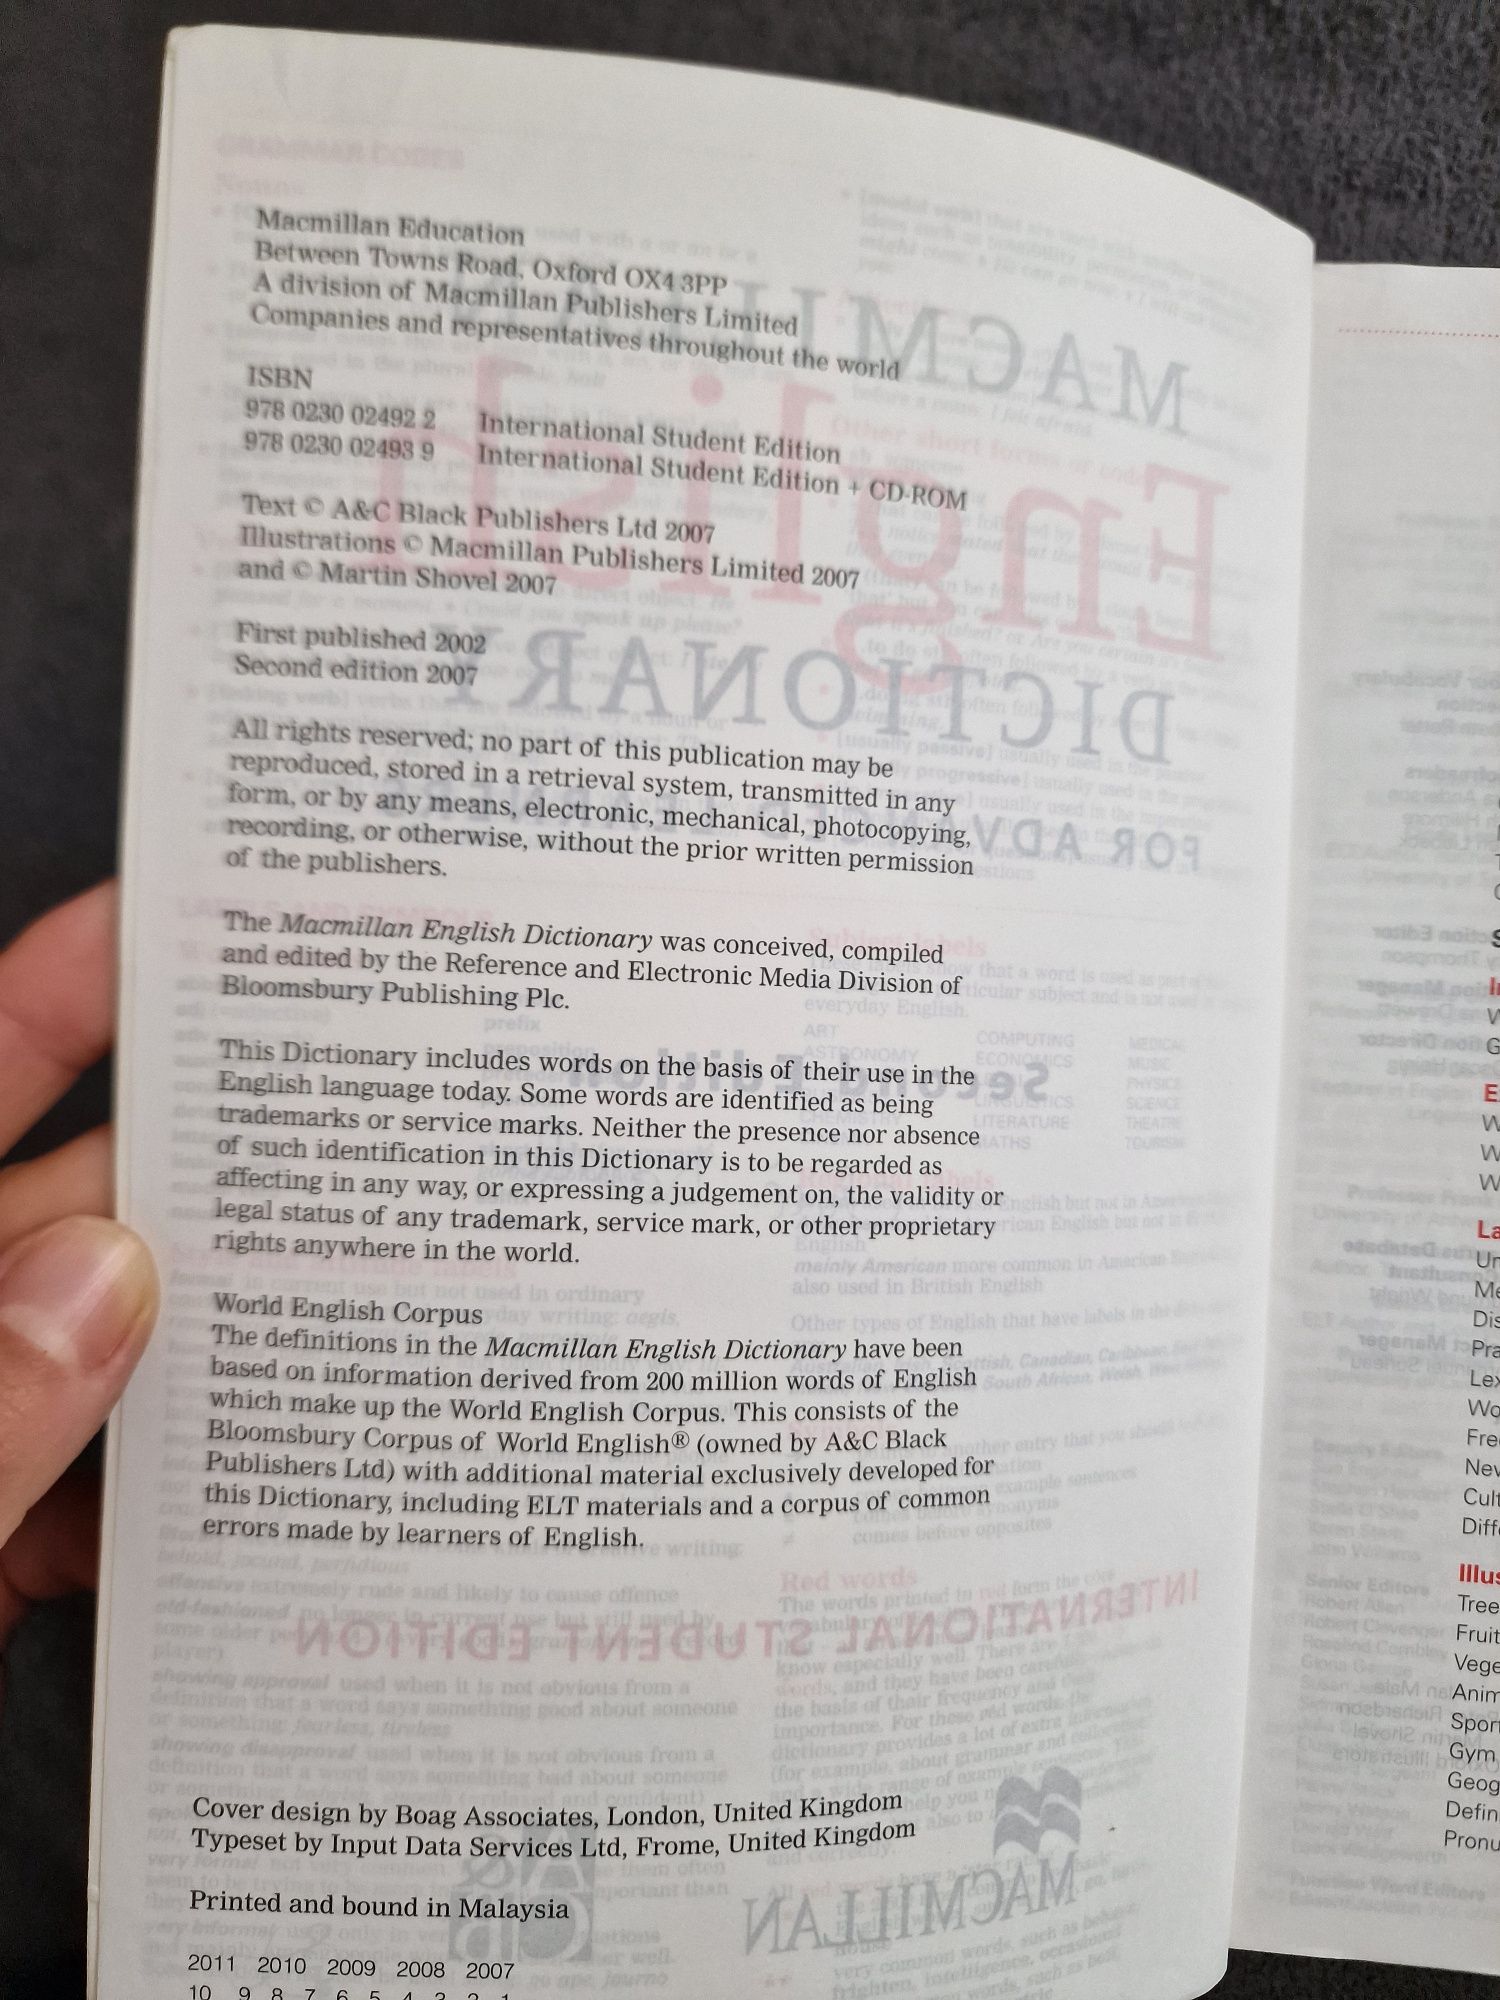 Macmillan Education
Between Towns Road, Oxford OX4 3PP
A division of Macmillan Publishers Limited
Companies and representatives throughout the world
ISBN
978 0230 02492 2 International Student Edition
978 0230 02493 9 International Student Edition + CD-ROM
Text © A&C Black Publishers Ltd 2007
Illustrations © Macmillan Publishers Limited 2007
and © Martin Shovel 2007
First published 2002
Second edition 2007
All rights reserved; no part of this publication may be
reproduced, stored in a retrieval system, transmitted in any
form, or by any means, electronic, mechanical, photocopying,
recording, or otherwise, without the prior written permission
of the publishers.
The Macmillan English Dictionary was conceived, compiled
and edited by the Reference and Electronic Media Division of
Bloomsbury Publishing Plc.
This Dictionary includes words on the basis of their use in the
English language today. Some words are identified as being
trademarks or service marks. Neither the presence nor absence
of such identification in this Dictionary is to be regarded as
affecting in any way, or expressing a judgement on, the validity or
legal status of any trademark, service mark, or other proprietary
rights anywhere in the world.
World English Corpus
The definitions in the Macmillan English Dictionary have been
based on information derived from 200 million words of English
which make up the World English Corpus. This consists of the
Bloomsbury Corpus of World English® (owned by A&C Black
Publishers Ltd) with additional material exclusively developed for
this Dictionary, including ELT materials and a corpus of common
errors made by learners of English.
Cover design by Boag Associates, London, United Kingdom
Typeset by Input Data Services Ltd, Frome, United Kingdom
Printed and bound in Malaysia
2011 2010 2009 2008 2007
10 9 8 7 6 5 4 3 2 1